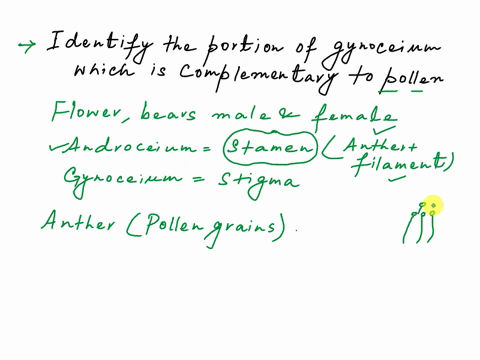 → Identify the portion of gynoceium
which is complementary to pollen
Flower, bears male & female
✓Androceium = Stamen (Anther+
filament)
Gynoceium = Stigma
Anther (Pollen grains).